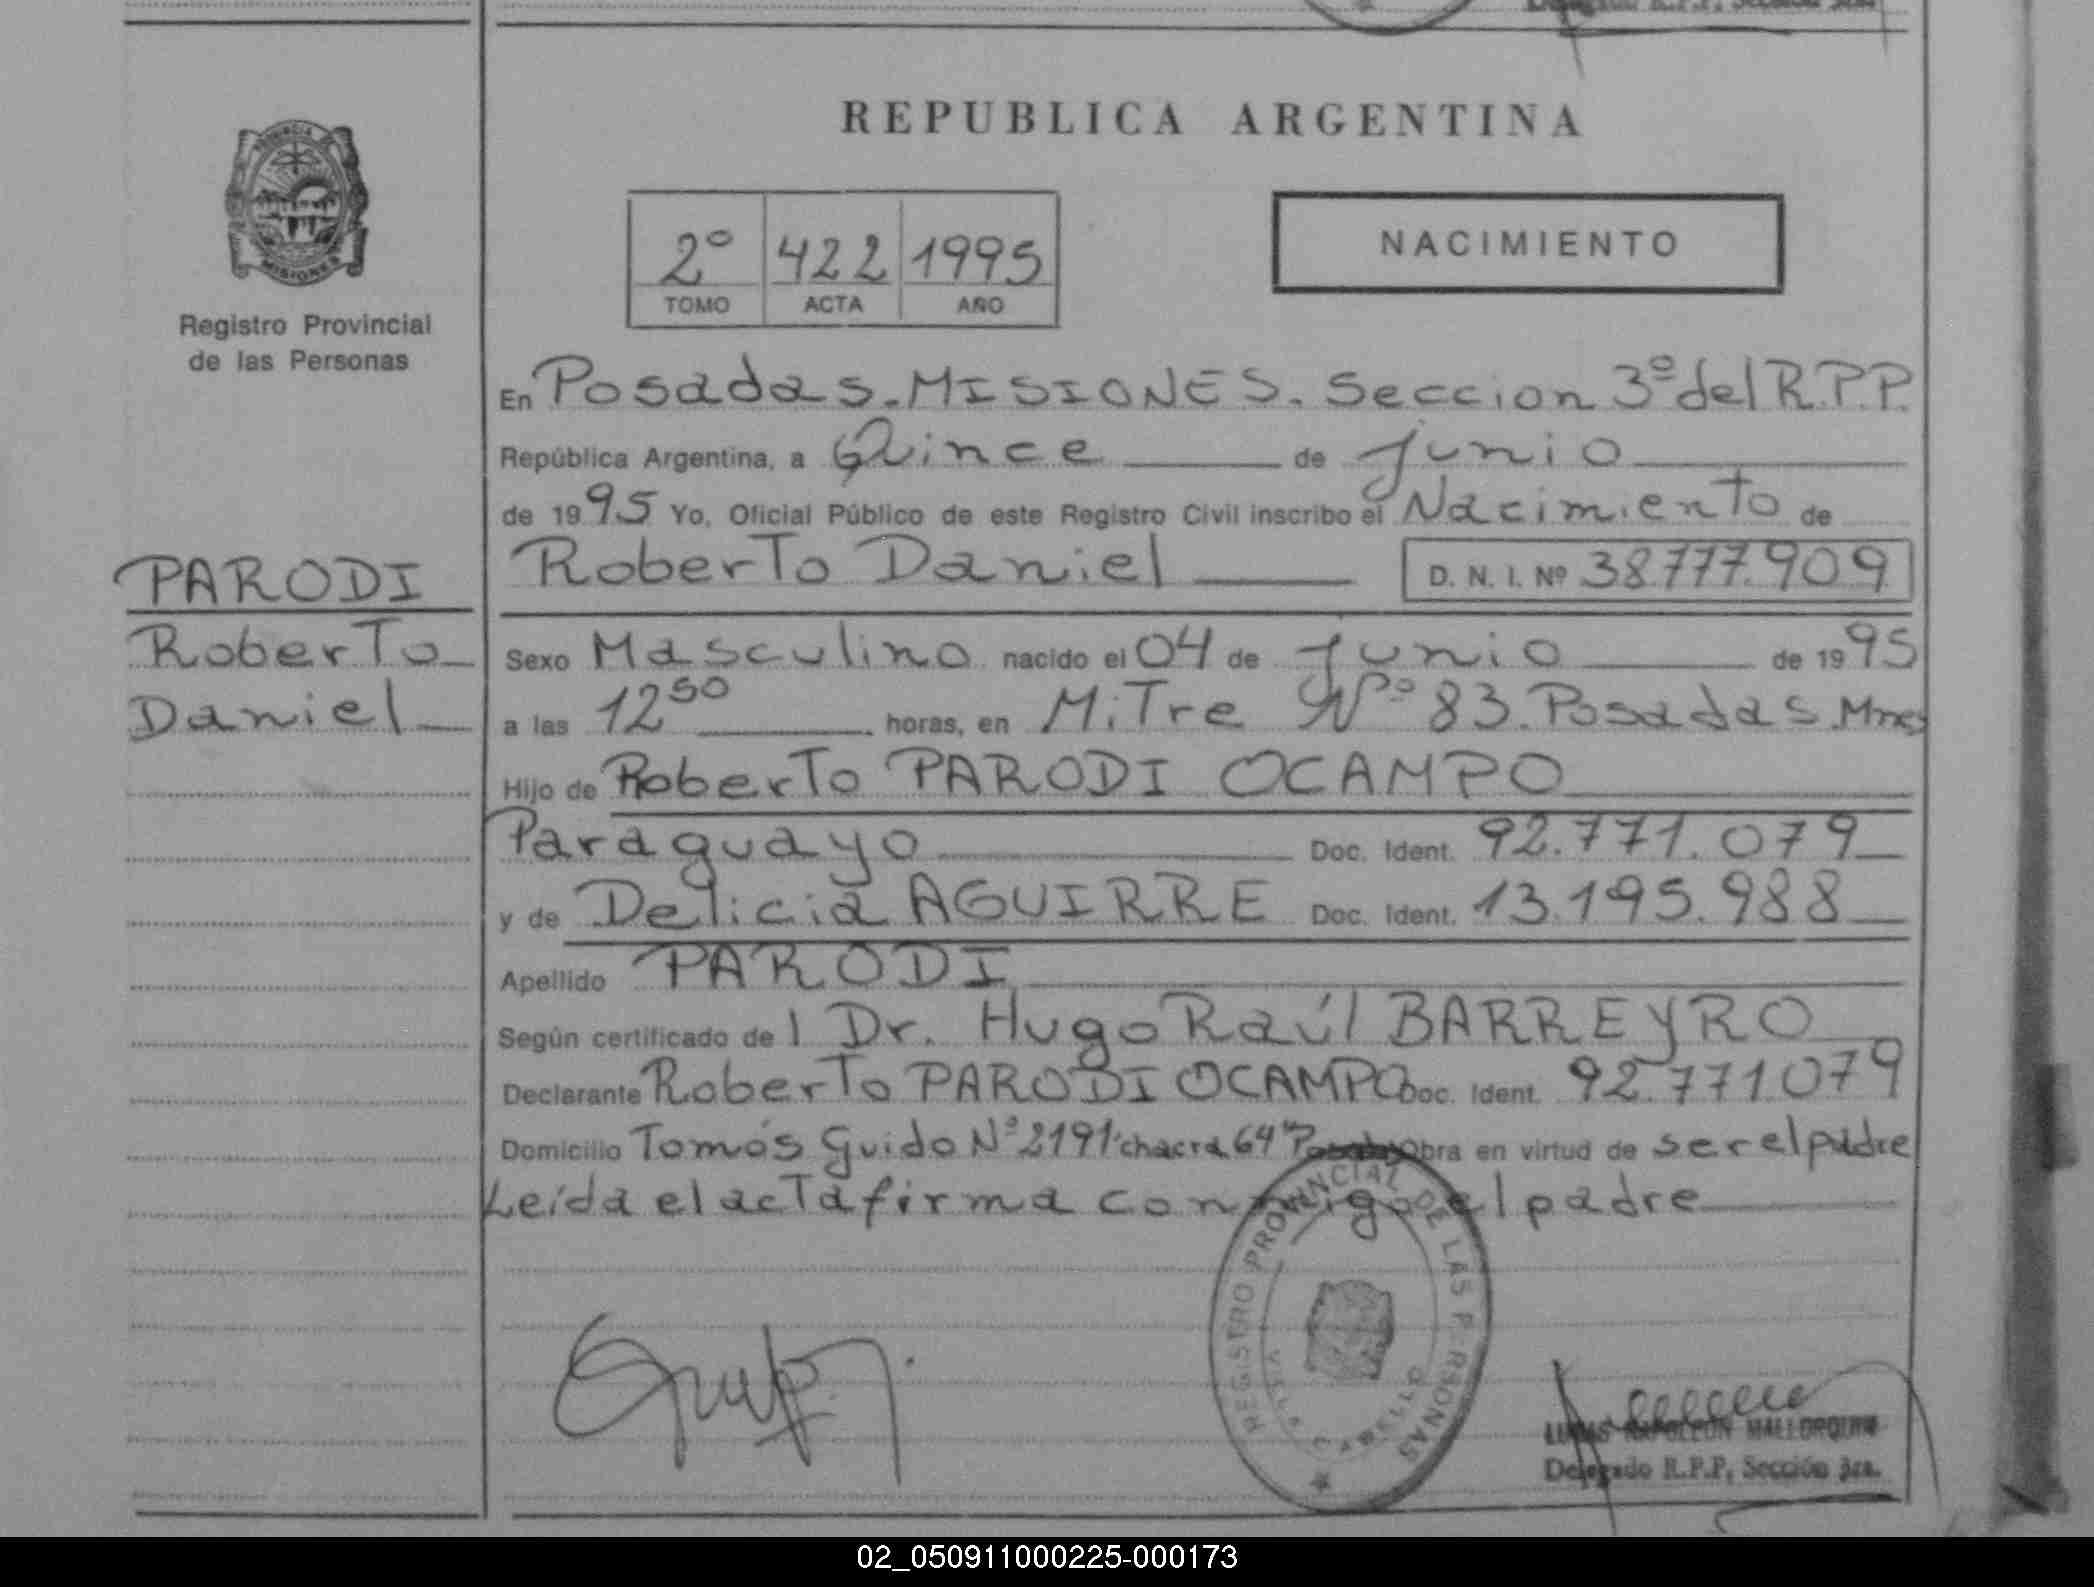 Delegado R.P.P. Sección 3ra.
PROVINCIA
MISIONES
Registro Provincial
de las Personas
PARODI
Roberto
Daniel
REPUBLICA ARGENTINA
2º 422 1995
TOMO ACTA AÑO
NACIMIENTO
En Posadas.MISIONES. Seccion 3º del R.P.P.
República Argentina, a Quince de junio
de 1995 Yo, Oficial Público de este Registro Civil inscribo el Nacimiento de
Roberto Daniel D. N. I. Nº 38.777.909
Sexo Masculino nacido el 04 de junio de 1995
a las 12 50 horas, en MiTre Nº 83. Posadas. Mnes
Hijo de Roberto PARODI OCAMPO
Paraguayo Doc. Ident. 92.771.079
y de Delicia AGUIRRE Doc. Ident. 13.195.988
Apellido PARODI
Según certificado de l Dr. Hugo Raúl BARREYRO
Declarante Roberto PARODI OCAMPO Doc. Ident. 92.771.079
Domicilio Tomás Guido Nº 2191 "chacra 64" Posadas Obra en virtud de ser el padre
Leída el acta firma conmigo el padre
REGISTRO PROVINCIAL DE LAS PERSONAS
LUCAS NAPOLEON MALLORQUIN
Delegado R.P.P. Sección 3ra.
02_050911000225-000173